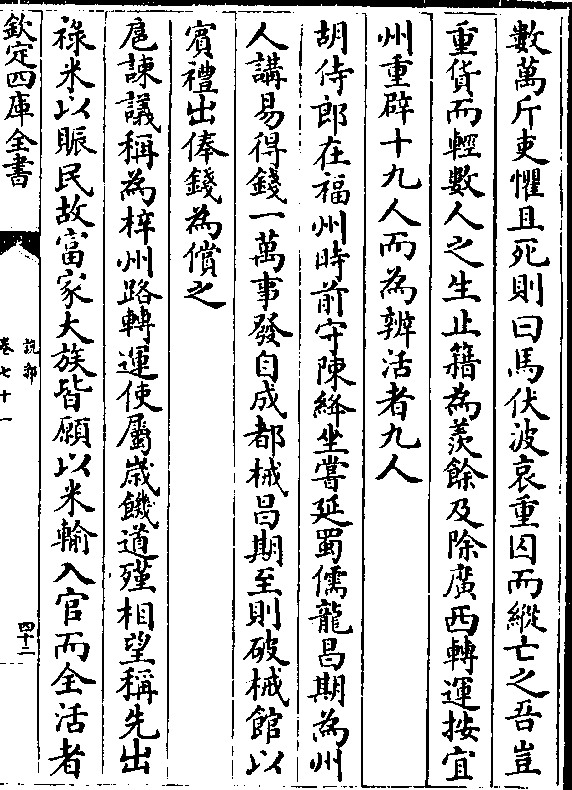 數萬斤吏懼且死則曰馬伏波哀重囚而縱亡之吾豈
重貨而輕數人之生止籍為羨餘及除廣西轉運按宜
州重辟十九人而為辨活者九人
胡侍郎在福州時前守陳絳坐嘗延蜀儒龍昌期為州
人講易得錢一萬事發自成都械昌期至則破械館以
賓禮出俸錢為償之
扈諫議稱為梓州路轉運使屬歲饑道殣相望稱先出
祿米以賑民故富家大族皆願以米輸入官而全活者
欽定四庫全書
說郛
卷七十一
四十二